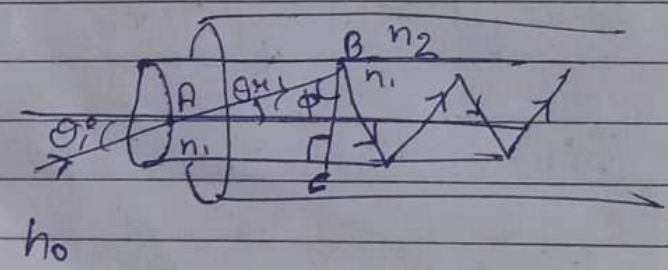 B n₂
A θr φ n₁
θi n₁
C
n₀